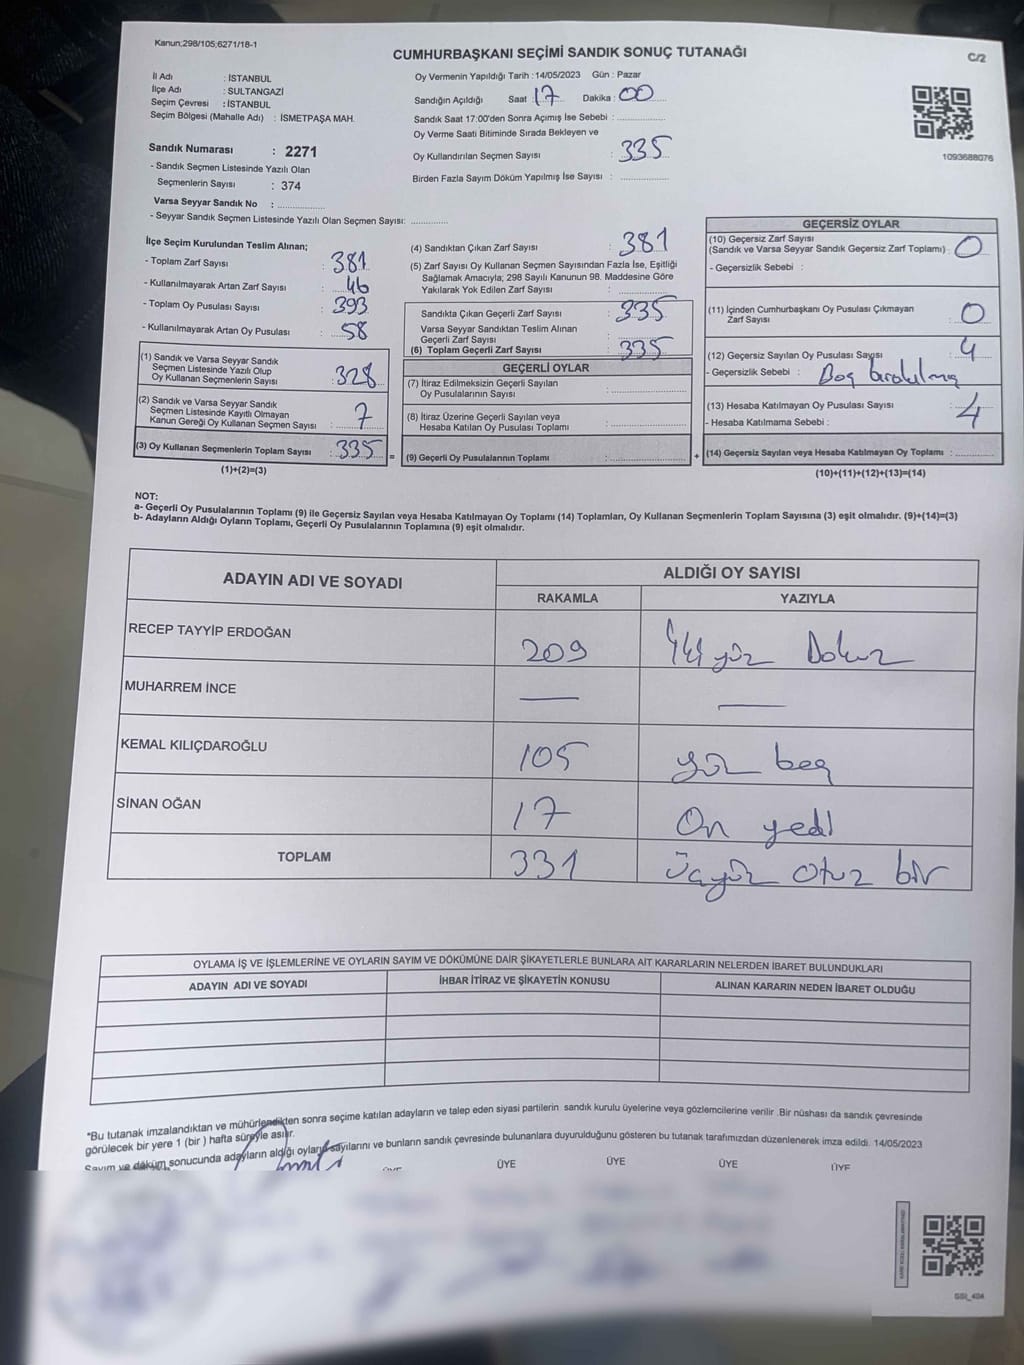 Kanun;298/105;6271/18-1
CUMHURBAŞKANI SEÇİMİ SANDIK SONUÇ TUTANAĞI
C/2
İl Adı : İSTANBUL
İlçe Adı : SULTANGAZİ
Seçim Çevresi : İSTANBUL
Seçim Bölgesi (Mahalle Adı) : İSMETPAŞA MAH.
Sandık Numarası : 2271
- Sandık Seçmen Listesinde Yazılı Olan
Seçmenlerin Sayısı : 374
Varsa Seyyar Sandık No : ..............
- Seyyar Sandık Seçmen Listesinde Yazılı Olan Seçmen Sayısı: ............
Oy Vermenin Yapıldığı Tarih : 14/05/2023 Gün : Pazar
Sandığın Açıldığı Saat : 17 Dakika : 00
Sandık Saat 17:00'den Sonra Açımış İse Sebebi : ................
Oy Verme Saati Bitiminde Sırada Bekleyen ve
Oy Kullandırılan Seçmen Sayısı : 335
Birden Fazla Sayım Döküm Yapılmış İse Sayısı : ................
1093688076
İlçe Seçim Kurulundan Teslim Alınan;
- Toplam Zarf Sayısı : 381
- Kullanılmayarak Artan Zarf Sayısı : 46
- Toplam Oy Pusulası Sayısı : 393
- Kullanılmayarak Artan Oy Pusulası : 58
(1) Sandık ve Varsa Seyyar Sandık
Seçmen Listesinde Yazılı Olup
Oy Kullanan Seçmenlerin Sayısı : 328
(2) Sandık ve Varsa Seyyar Sandık
Seçmen Listesinde Kayıtlı Olmayan
Kanun Gereği Oy Kullanan Seçmen Sayısı : 7
(3) Oy Kullanan Seçmenlerin Toplam Sayısı : 335
(1)+(2)=(3)
(4) Sandıktan Çıkan Zarf Sayısı : 381
(5) Zarf Sayısı Oy Kullanan Seçmen Sayısından Fazla İse, Eşitliği
Sağlamak Amacıyla; 298 Sayılı Kanunun 98. Maddesine Göre
Yakılarak Yok Edilen Zarf Sayısı : ................
Sandıkta Çıkan Geçerli Zarf Sayısı : 335
Varsa Seyyar Sandıktan Teslim Alınan
Geçerli Zarf Sayısı : ................
(6) Toplam Geçerli Zarf Sayısı : 335
GEÇERLİ OYLAR
(7) İtiraz Edilmeksizin Geçerli Sayılan
Oy Pusulalarının Sayısı : ................
(8) İtiraz Üzerine Geçerli Sayılan veya
Hesaba Katılan Oy Pusulası Toplamı : ................
= (9) Geçerli Oy Pusulalarının Toplamı : ................ +
GEÇERSİZ OYLAR
(10) Geçersiz Zarf Sayısı
(Sandık ve Varsa Seyyar Sandık Geçersiz Zarf Toplamı) : 0
- Geçersizlik Sebebi :
(11) İçinden Cumhurbaşkanı Oy Pusulası Çıkmayan
Zarf Sayısı : 0
(12) Geçersiz Sayılan Oy Pusulası Sayısı : 4
- Geçersizlik Sebebi : Boş bırakılmış
(13) Hesaba Katılmayan Oy Pusulası Sayısı : 4
- Hesaba Katılmama Sebebi :
(14) Geçersiz Sayılan veya Hesaba Katılmayan Oy Toplamı : ............
(10)+(11)+(12)+(13)=(14)
NOT:
a- Geçerli Oy Pusulalarının Toplamı (9) ile Geçersiz Sayılan veya Hesaba Katılmayan Oy Toplamı (14) Toplamları, Oy Kullanan Seçmenlerin Toplam Sayısına (3) eşit olmalıdır. (9)+(14)=(3)
b- Adayların Aldığı Oyların Toplamı, Geçerli Oy Pusulalarının Toplamına (9) eşit olmalıdır.
ADAYIN ADI VE SOYADI
ALDIĞI OY SAYISI
RAKAMLA YAZIYLA
RECEP TAYYİP ERDOĞAN 209 İki yüz Dokuz
MUHARREM İNCE — —
KEMAL KILIÇDAROĞLU 105 yüz beş
SİNAN OĞAN 17 On yedi
TOPLAM 331 üçyüz otuz bir
OYLAMA İŞ VE İŞLEMLERİNE VE OYLARIN SAYIM VE DÖKÜMÜNE DAİR ŞİKAYETLERLE BUNLARA AİT KARARLARIN NELERDEN İBARET BULUNDUKLARI
ADAYIN ADI VE SOYADI İHBAR İTİRAZ VE ŞİKAYETİN KONUSU ALINAN KARARIN NEDEN İBARET OLDUĞU
*Bu tutanak imzalandıktan ve mühürlendikten sonra seçime katılan adayların ve talep eden siyasi partilerin sandık kurulu üyelerine veya gözlemcilerine verilir .Bir nüshası da sandık çevresinde
görülecek bir yere 1 (bir ) hafta süreyle asılır.
Sayım ve döküm sonucunda adayların aldığı oyların sayılarını ve bunların sandık çevresinde bulunanlara duyurulduğunu gösteren bu tutanak tarafımızdan düzenlenerek imza edildi. 14/05/2023
ÜYE ÜYE ÜYE ÜYE ÜYE
GSI_404